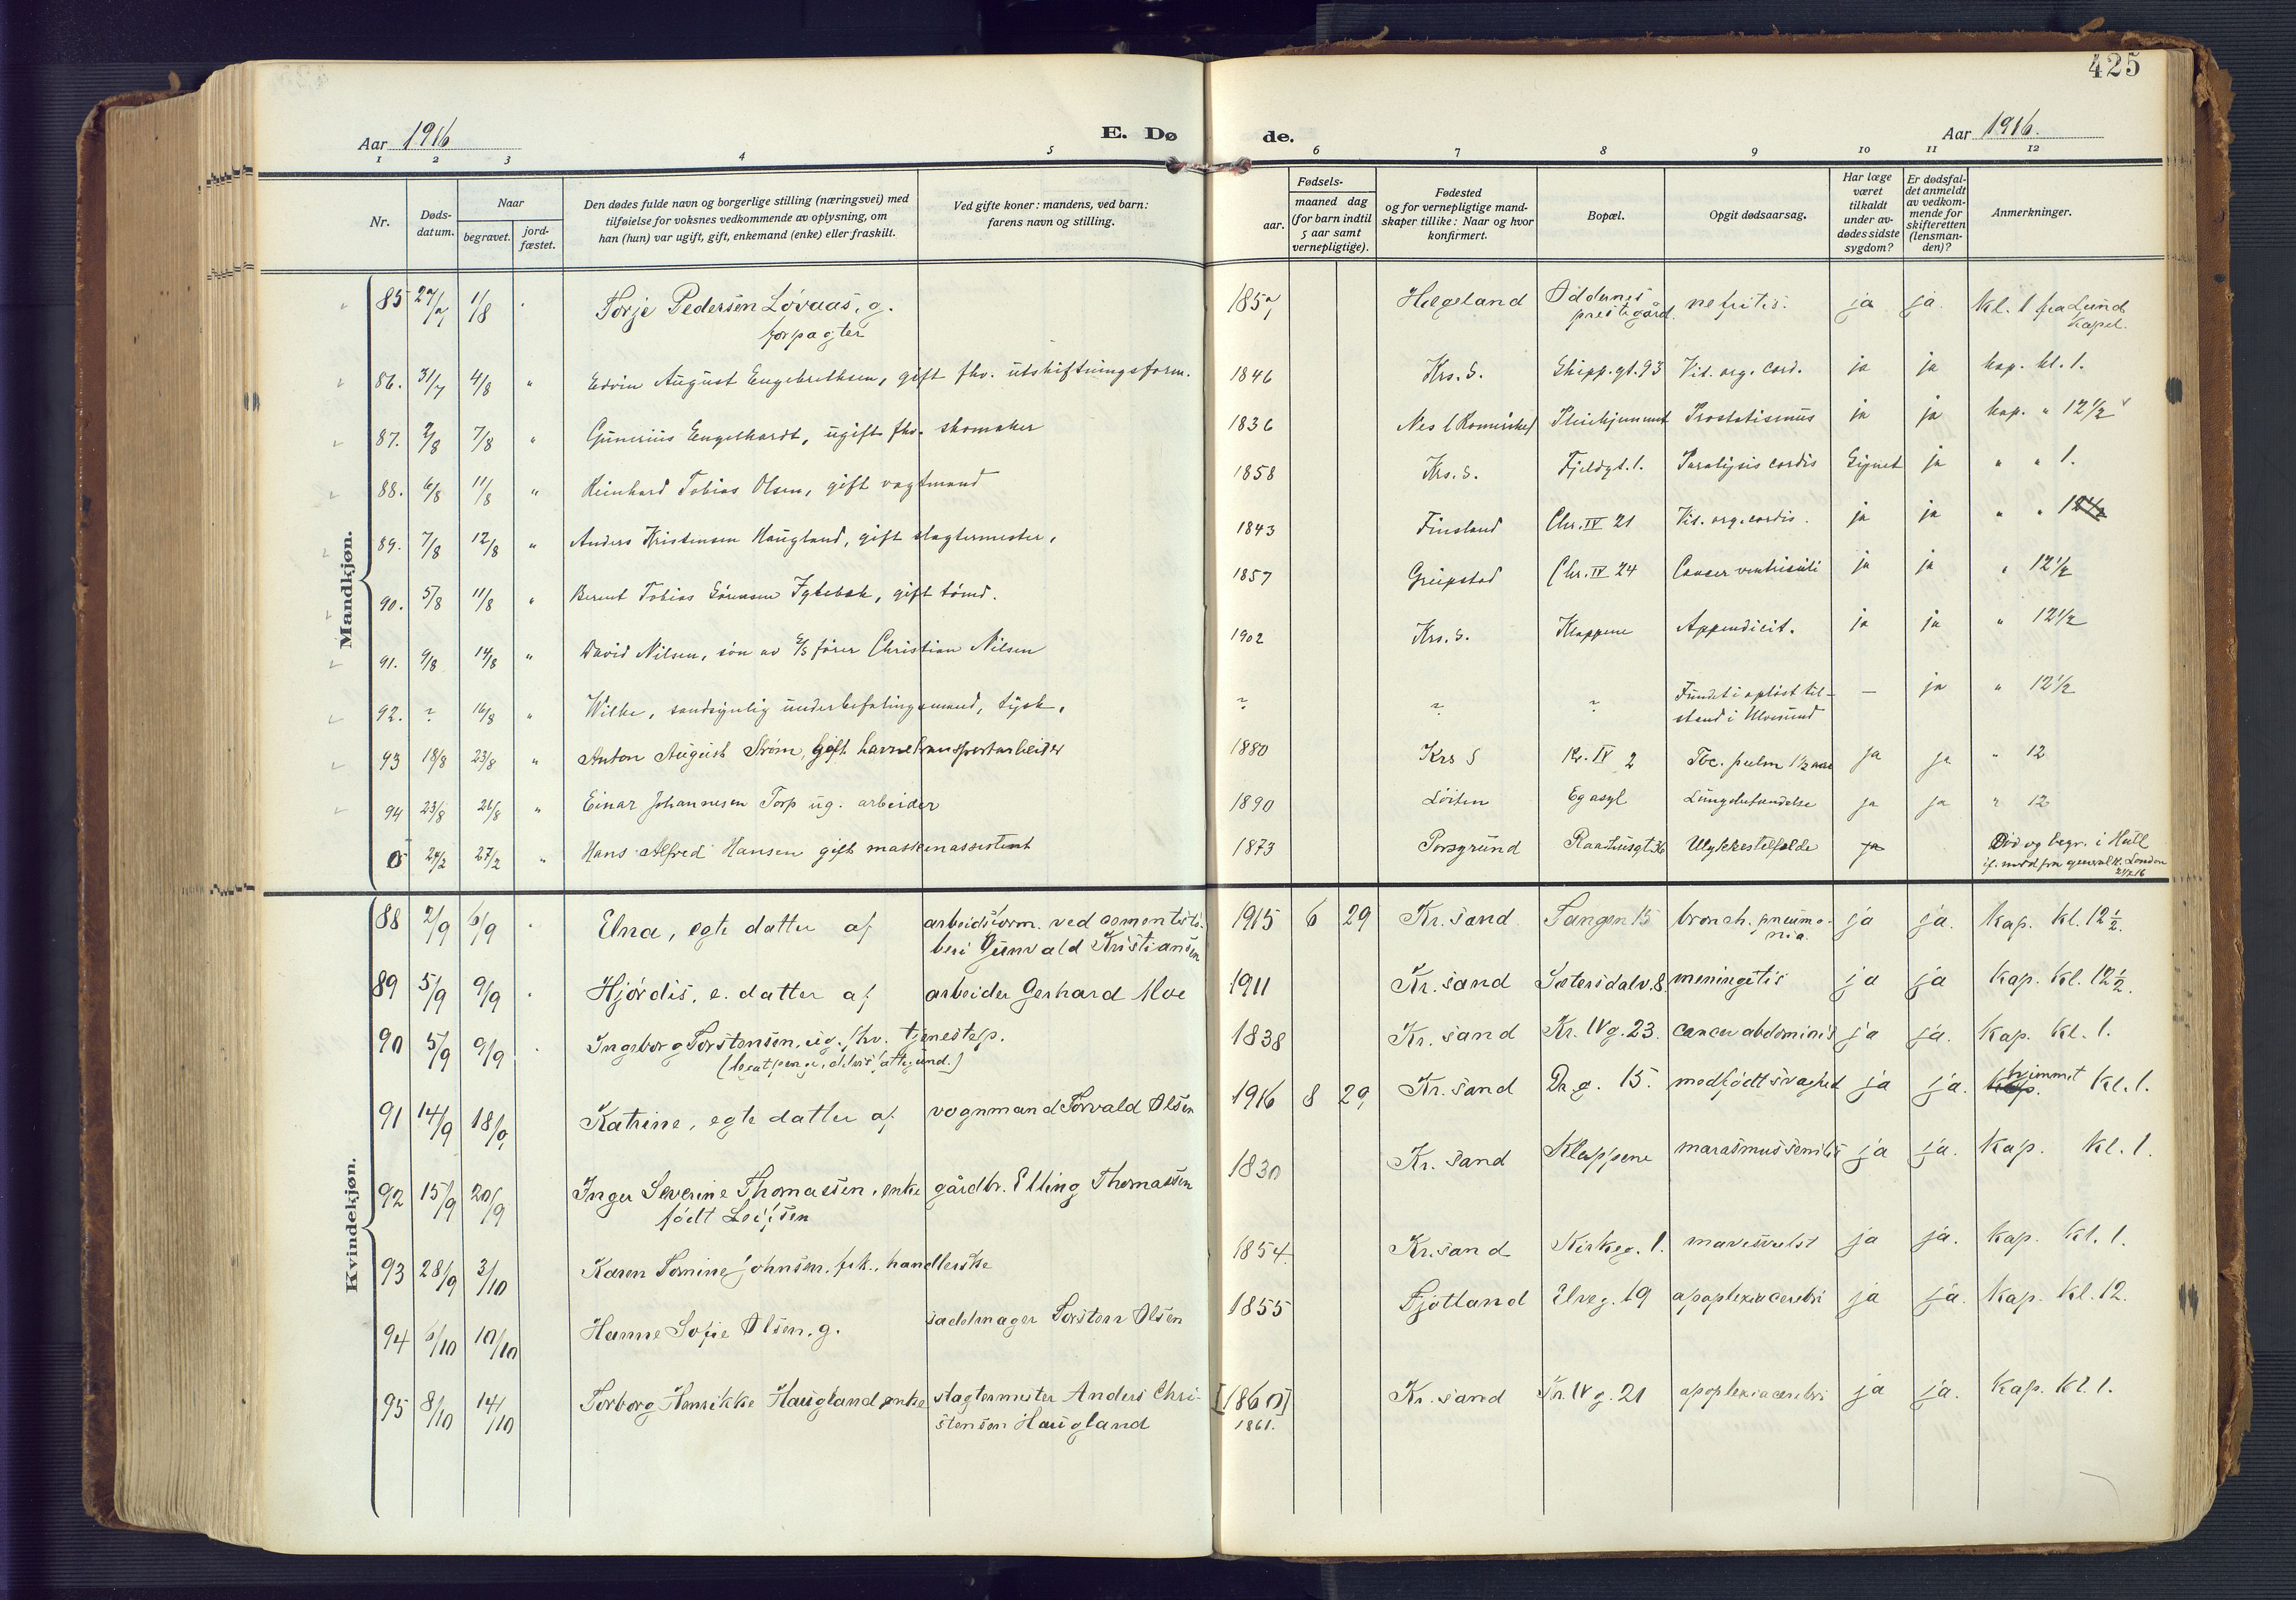 425
Aar 1916 E. Dø de. Aar 1916.
1 2 3 4 5 6 7 8 9 10 11 12
Nr.
Døds-
datum.
Naar
begravet.
jord-
fæstet.
Den dødes fulde navn og borgerlige stilling (næringsvei) med
tilføielse for voksnes vedkommende av oplysning, om
han (hun) var ugift, gift, enkemand (enke) eller fraskilt.
Ved gifte koner: mandens, ved barn:
farens navn og stilling.
Fødsels-
aar.
maaned dag
(for barn indtil
5 aar samt
vernepligtige).
Fødested
og for vernepligtige mand-
skaper tillike: Naar og hvor
konfirmert.
Bopæl.
Opgit dødsaarsag.
Har læge
været
tilkaldt
under av-
dødes sidste
sygdom?
Er dødsfal-
det anmeldt
av vedkom-
mende for
skifteretten
(lensman-
den)?
Anmerkninger.
Mandkjøn.
85 27/7 1/8 Torje Pedersen Løvaas, g. 1857 Hægeland Oddernes nefritis. ja ja. kl. 1 fra Lund
forpagter prestegård kapel.
86. 31/7 4/8 " Edvin August Engebrethsen, gift fhv. utskiftningsform. 1846 Krs. S. Skipp.gt. 93 Vit. org. cord. ja ja kap. kl. 1.
87. 2/8 7/8 " Gunerius Engelhardt, ugift fhv. skomaker 1836 Nes (Romerike) Pleiehjemmet Prostatismus ja ja kap. " 12 1/2
88. 6/8 11/8 " Reinhard Tobias Olsen, gift vagtmand 1858 Krs. S. Fjeldgt. 1. Paralysis cordis Signet ja " " 1.
89. 7/8 12/8 " Anders Kristensen Haugland, gift slagtermester, 1843 Finsland Chr. IV 21 Vit. org. cordis. ja ja " " 1
90. 5/8 11/8 " Berent Tobias Sørensen Fglebek, gift tømd. 1857 Greipstad Chr. IV 24 Cancer ventriculi ja ja " 12 1/2
91. 9/8 14/8 " David Nilsen, søn av S/S fører Christian Nilsen 1902 Krs. S. Klappene Appendicit. ja ja " 12 1/2
92. ? 16/8 " Wilke, sandsynlig underbefalingsmand, tysk. ? ? ? Fundet i opløst til- — ja " 12 1/2
stand i Ulvøsund
93 18/8 23/8 " Anton August Strøm, gift havnetransportarbeider 1880 Krs S Kr. IV 2 Tbc. pulm 1 1/2 aar ja ja " 12
94 23/8 26/8 " Einar Johannesen Torp ug. arbeider 1890 Løiten Eg asyl Lungebetændelse ja ja " 12
0 24/2 27/2 " Hans Alfred Hansen gift maskinassistent 1873 Porsgrund Raadhusgt 36 Ulykkestilfælde ja Død og begr. i Hull
if. medd fra generalk. London
Kvindekjøn.
88 2/9 6/9 Elna, egte datter af arbeidsform. ved cementstø- 1915 6 29 Kr.sand Tangen 15 bronch. pneumo- ja ja. kap. kl. 12 1/2.
beri Gunvald Kristiansen nia.
89 5/9 9/9 Hjørdis, e. datter af arbeider Gerhard Moe 1911 Kr. sand Sætersdalv. 8 meningitis ja ja kap. kl. 12 1/2.
90 5/9 9/9 Ingeborg Torstensen, ug. fhv. tjenestep. 1838 Kr. sand Kr. IVg. 23. cancer abdominis ja ja. kap. kl. 1.
91 14/9 18/9 Katrine, egte datter af vognmand Torvald Olsen 1916 8 29 Kr. sand Dr.g. 15. medfødt svaghed ja ja. hjemmet kl. 1.
92 15/9 20/9 Inger Severine Thomassen, enke gårdbr. Elling Thomassen 1830 Kr. sand Klappene marasmus senilis ja ja. kap. kl. 1.
født Leifsen
93 28/9 3/10 Karen Tomine Johnsen, frk., handlerske 1854. Kr.sand Kirkeg. 1. mavesvulst ja ja. kap. kl. 1.
94 6/10 10/10 Hanne Sofie Olsen. g. sadelmager Torsten Olsen 1855 Fjotland Elveg. 19 apoplexia cerebri ja ja. kap. kl. 12.
95 8/10 14/10 Torborg Henrikke Haugland, enke slagtermester Anders Chri- [1860] Kr. sand Kr. IVg. 21 apoplexia cerebri ja ja. kap. kl. 1.
stensen Haugland 1861.